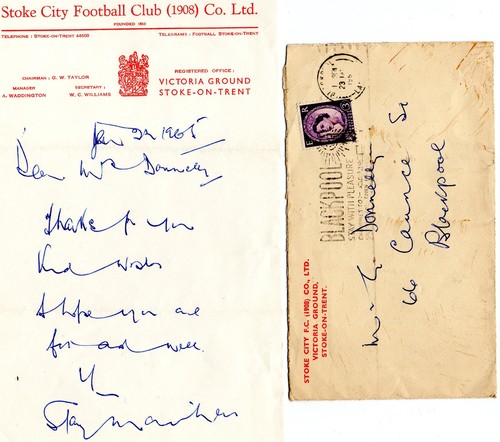 Stoke City Football Club (1908) Co. Ltd.
FOUNDED 1863
TELEPHONE : STOKE-ON-TRENT 44660
TELEGRAMS : FOOTBALL STOKE-ON-TRENT
CHAIRMAN : G. W. TAYLOR
MANAGER
A. WADDINGTON
SECRETARY :
W. C. WILLIAMS
REGISTERED OFFICE :
VICTORIA GROUND
STOKE-ON-TRENT
1965
Dear Mrs Donnelly
Thanks for your
kind wishes
I hope you are
fit and well.
Stanley Matthews
BLACKPOOL
STAY WITH PLEASURE
Donnelly
66 Caunce St
Blackpool
STOKE CITY F.C. (1908) CO., LTD.
VICTORIA GROUND,
STOKE-ON-TRENT.